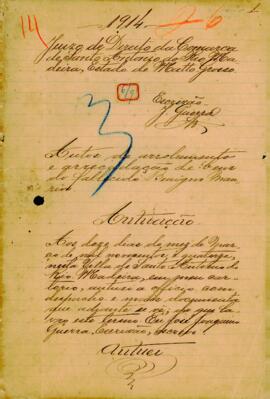 1914
14
26
1
Juizo de Direito da Comarca
de Santo Antonio do Rio Ma-
deira, Estado de Matto Grosso
Escrivão
J. Guerra
3
Autos de arrolamento
e arrecadação de bens
do fallecido Benigno
Autuação
Aos doze dias do mez de
de mil novecentos e quatorze,
nesta Villa de Santo Antonio do
Rio Madeira, em meu car-
torio, autuei o officio com
despacho e mais documentos
que adiante se vê; do que la-
vro este termo. Eu José Joaquim
Guerra, Escrivão, escrevi
Autuei